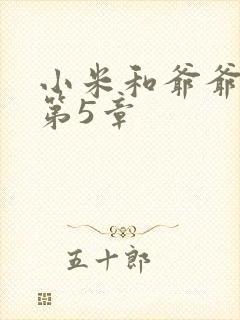 小米和爷爷
第5章
五十郎